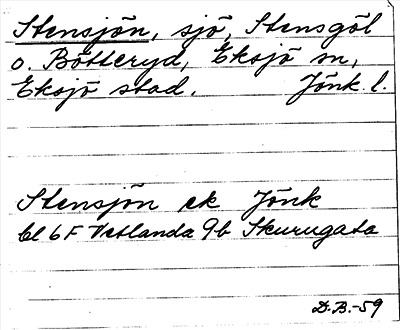 Stensjön, sjö, Stensgöl
o. Bötteryd, Eksjö sn,
Eksjö stad. Jönk. l.
Stensjön ek Jönk
bl 6F Vetlanda 9b Skurugata
D.B.-59